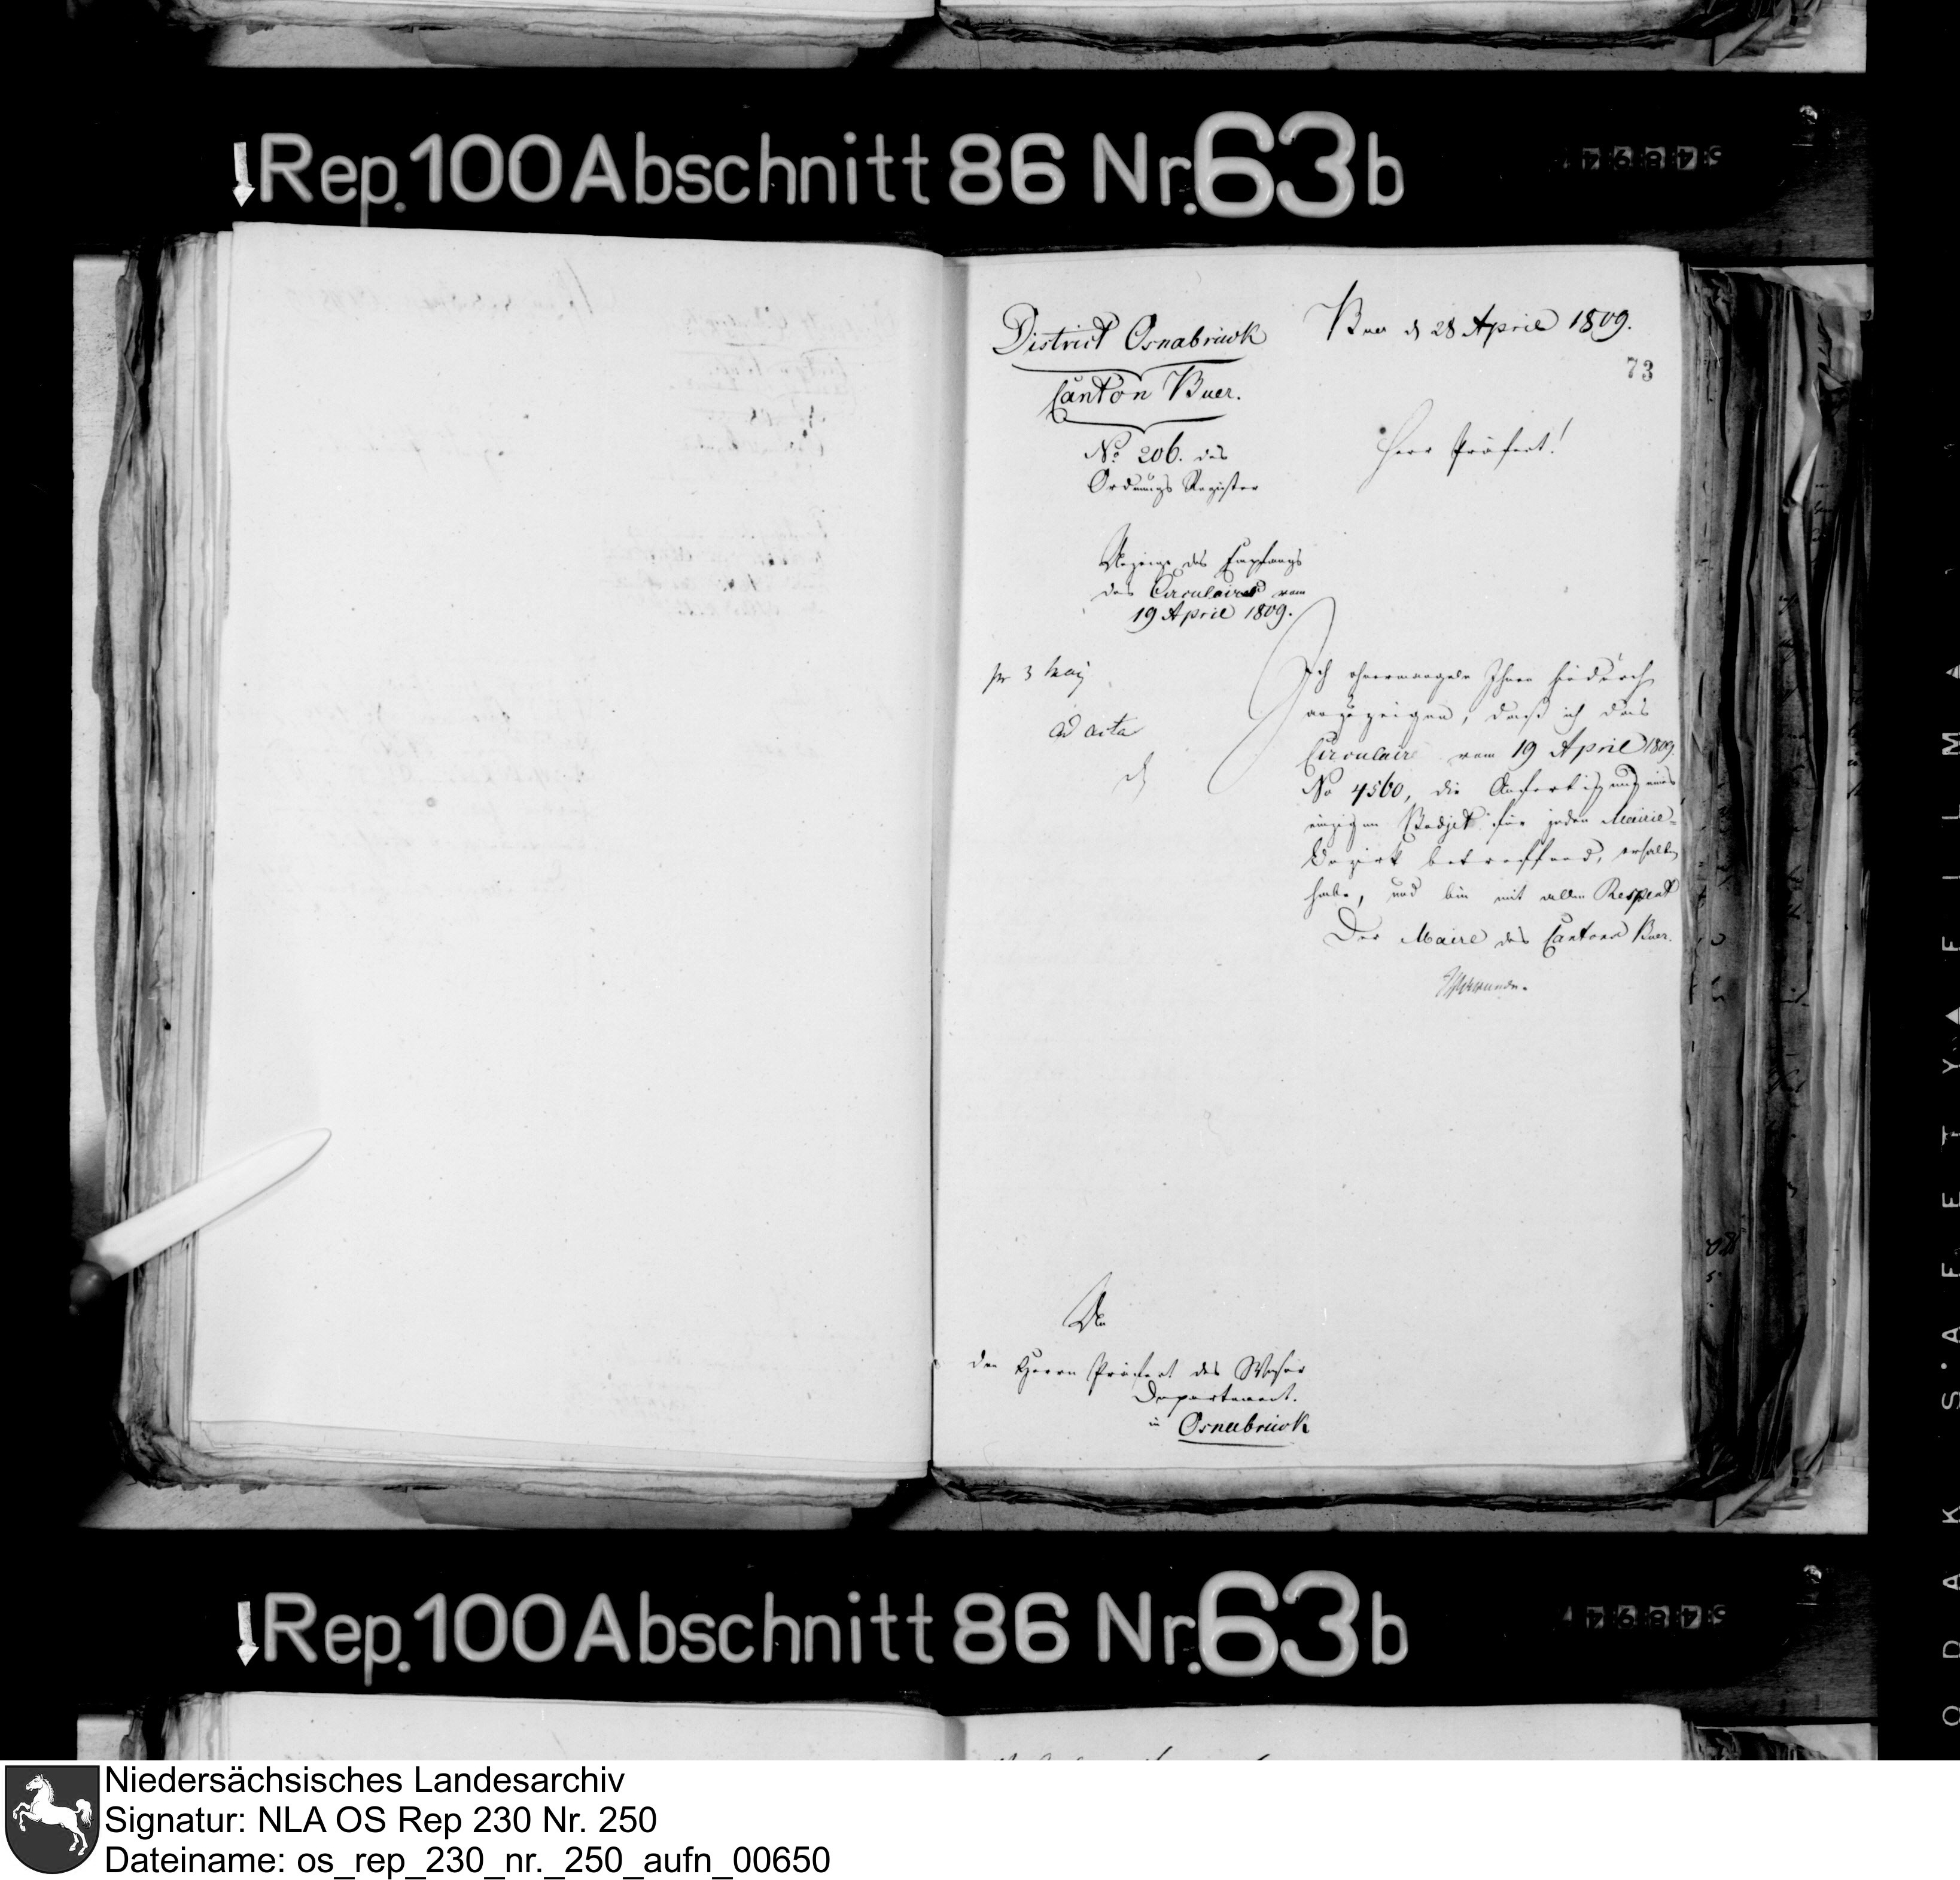 Rep. 100 Abschnitt 86 Nr. 63 b
District Osnabrück
Canton Buer.
No 206. des
Ordnungs Register
Buer d 28 April 1809.
73
Herr Präfect!
Anzeige des Empfangs
des Circulaires vom
19 April 1809.
pr 3 Maij
ad acta
Ich ohnermangele Ihnen hiedurch
anzuzeigen, daß ich das
Circulaire vom 19 April 1809.
No 4560, die Anfertigung eines
einzigen Budjet für jeden Mairie-
Bezirk betreffend, erhalten
habe, und bin mit allem Respect
Der Maire des Cantons Buer.
An
den Herrn Präfect des Weser
Departement.
in Osnabrück
Rep. 100 Abschnitt 86 Nr. 63 b
Niedersächsisches Landesarchiv
Signatur: NLA OS Rep 230 Nr. 250
Dateiname: os_rep_230_nr._250_aufn_00650